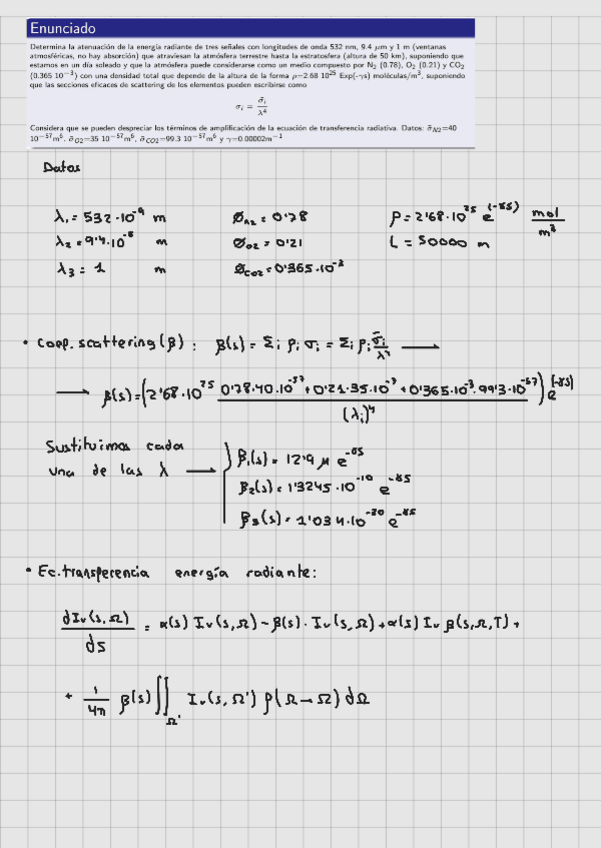 Enunciado
Determina la atenuación de la energía radiante de tres señales con longitudes de onda 532 nm, 9.4 μm y 1 m (ventanas
atmosféricas, no hay absorción) que atraviesan la atmósfera terrestre hasta la estratosfera (altura de 50 km), suponiendo que
estamos en un día soleado y que la atmósfera puede considerarse como un medio compuesto por N₂ (0.78), O₂ (0.21) y CO₂
(0.365 10⁻³) con una densidad total que depende de la altura de la forma ρ=2.68 10²⁵ Exp(-γs) moléculas/m³, suponiendo
que las secciones eficaces de scattering de los elementos pueden escribirse como
σᵢ = σ̄ᵢ / λ⁴
Considera que se pueden despreciar los términos de amplificación de la ecuación de transferencia radiativa. Datos: σ̄_N2=40
10⁻⁵⁷m⁶, σ̄_O2=35 10⁻⁵⁷m⁶, σ̄_CO2=99.3 10⁻⁵⁷m⁶ y γ=0.00002m⁻¹
Datos
λ₁ = 532·10⁻⁹ m Ø_N2 = 0'78 ρ = 2'68·10²⁵ e^(-γs) mol/m³
λ₂ = 9'4·10⁻⁶ m Ø_O2 = 0'21 L = 50000 m
λ₃ = 1 m Ø_CO2 = 0'365·10⁻³
• Coef. scattering (β): β(s) = Σᵢ ρᵢ σᵢ = Σᵢ ρᵢ σ̄ᵢ/λ⁴ →
→ β(s) = (2'68·10²⁵ (0'78·40·10⁻⁵⁷ + 0'21·35·10⁻⁵⁷ + 0'365·10⁻³·99'3·10⁻⁵⁷) / (λᵢ)⁴) e^(-γs)
Sustituimos cada
una de las λ →
β₁(s) = 12'9 μ e^-γs
β₂(s) = 1'3245·10⁻¹⁰ e^-γs
β₃(s) = 1'034·10⁻³⁰ e^-γs
• Ec. transferencia energía radiante:
dIᵥ(s,Ω)/ds = α(s) Iᵥ(s,Ω) - β(s)·Iᵥ(s,Ω) + α(s) Iᵥ β(s,Ω,T) +
+ 1/4π β(s) ∬_Ω' Iᵥ(s,Ω') P(Ω→Ω) dΩ